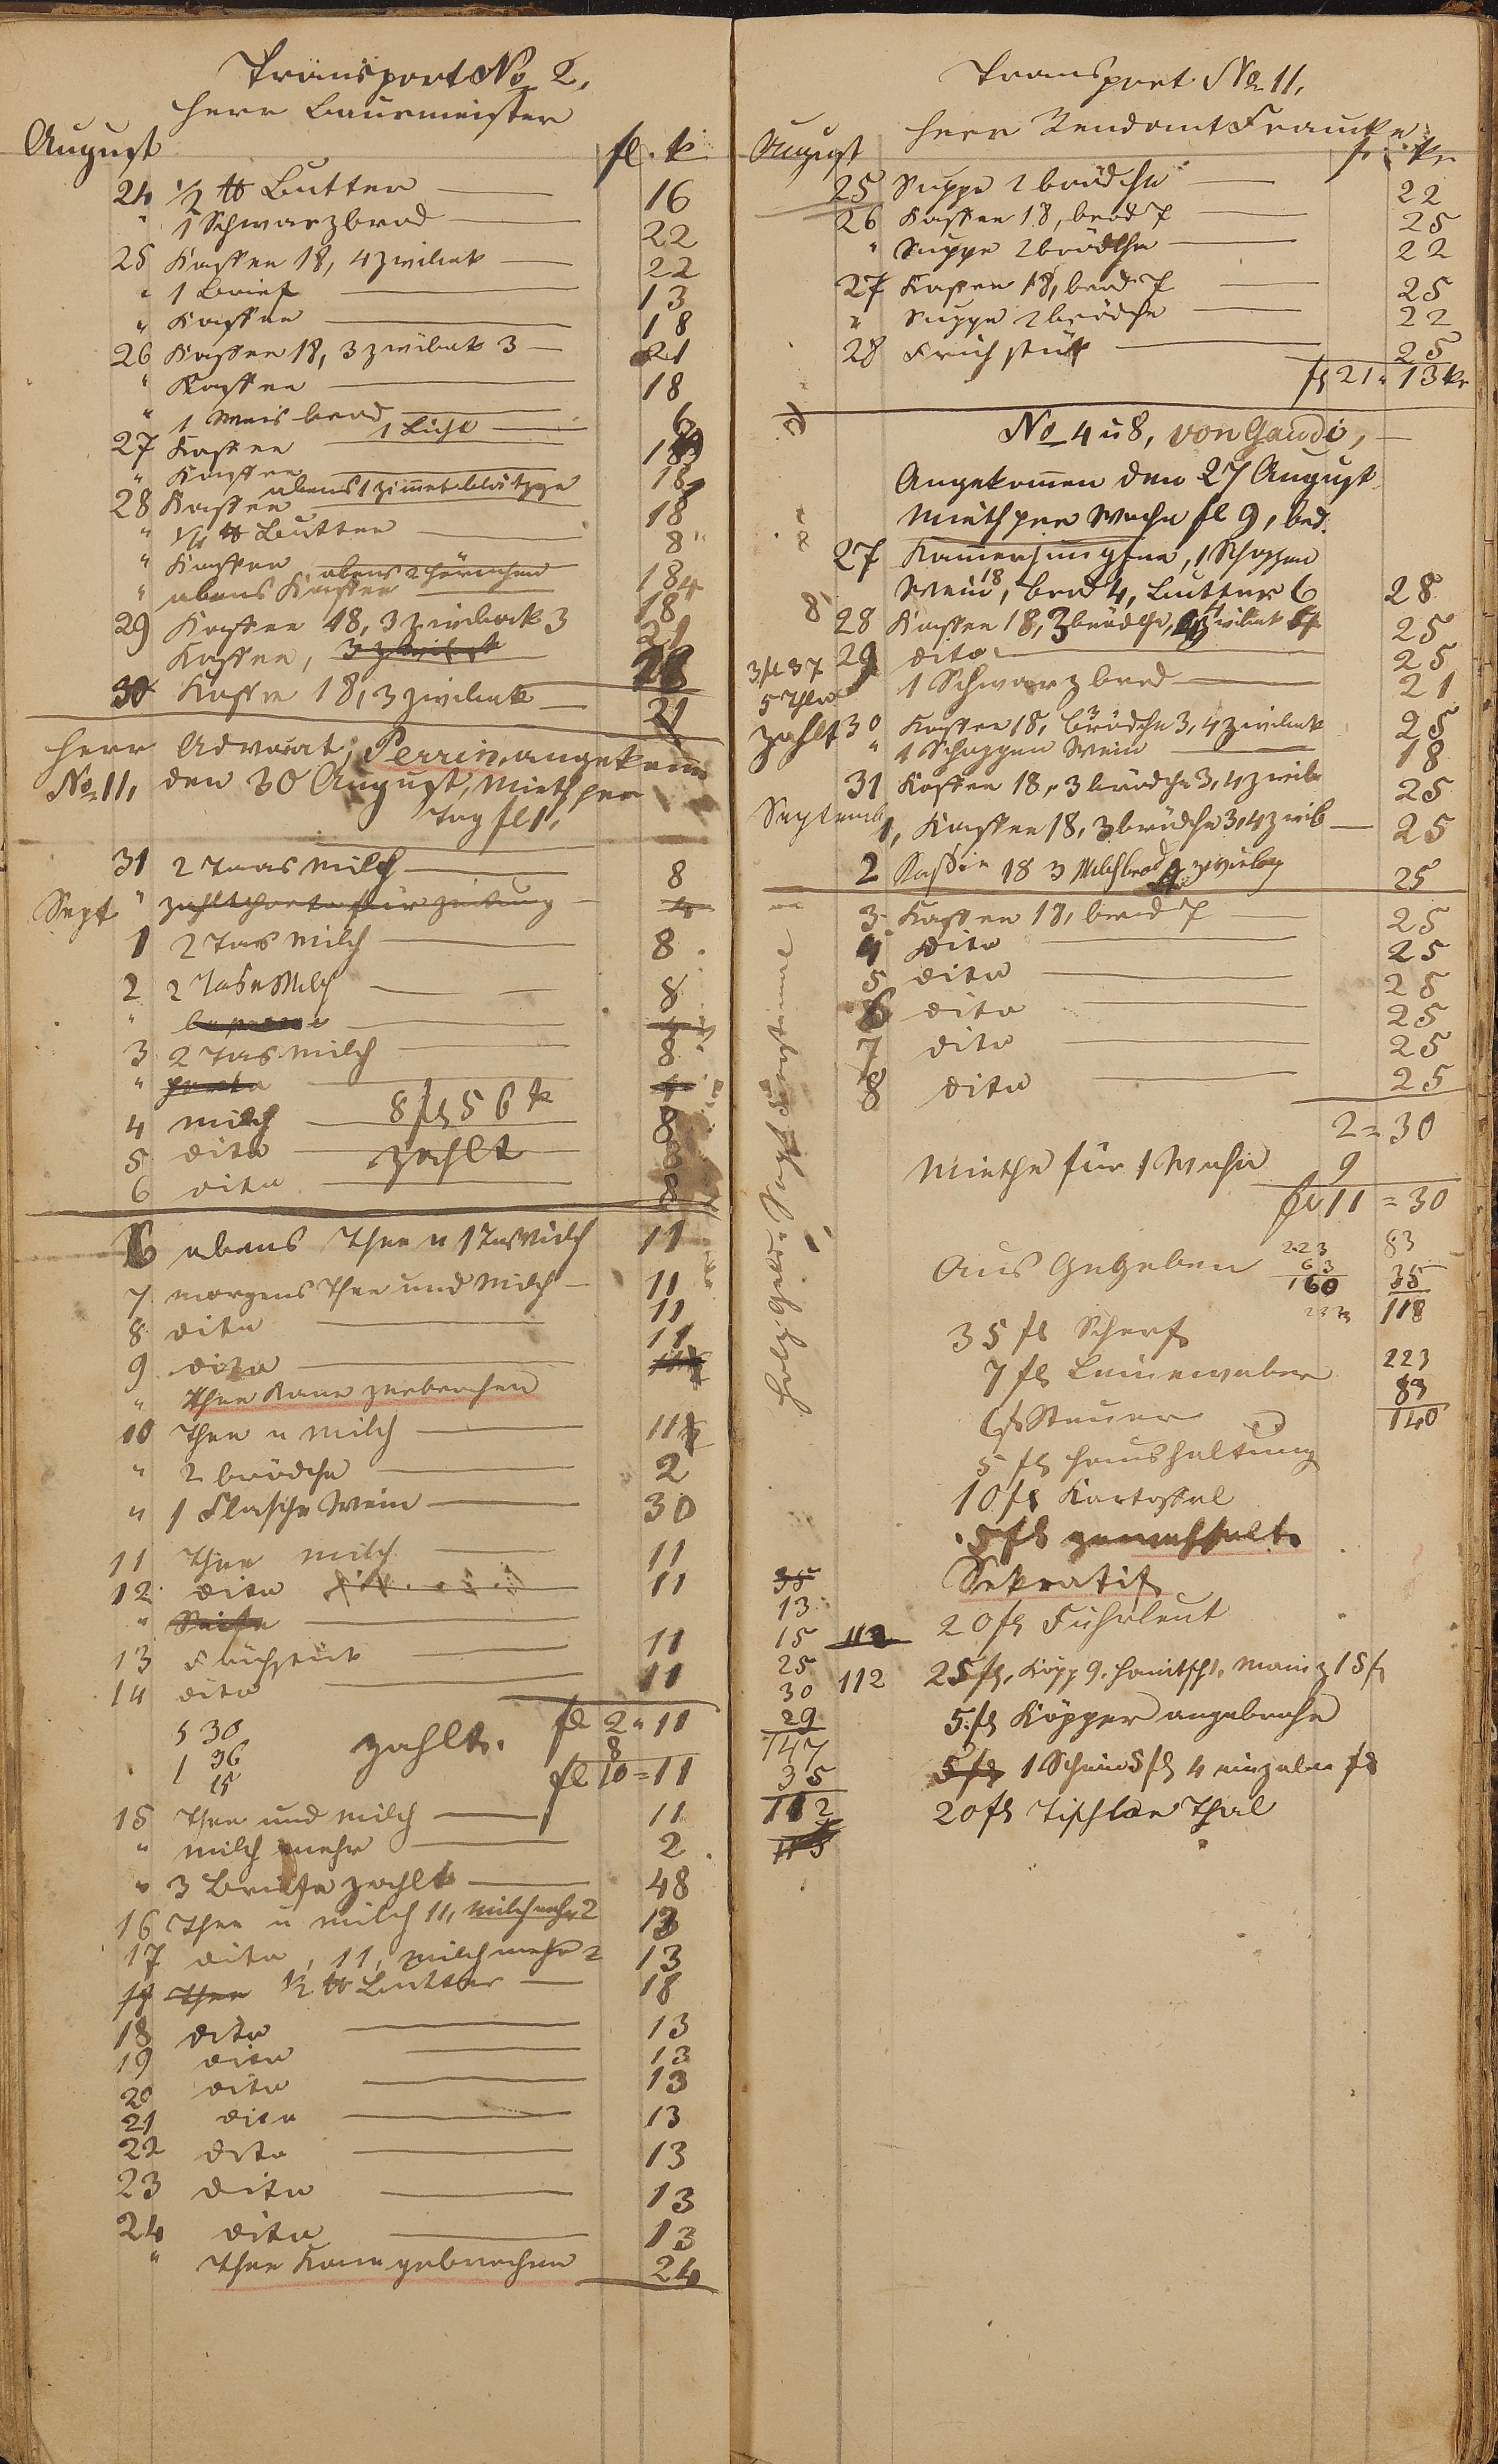 Transport No 2.
Herr Bauermeister
August fl. k
24 ½ ℔ Butter — 16
" 1 Schwarzbrod — 22
25 Kaffee 18, 4 zwiebak — 22
" 1 Brief — 13
" Kaffee — 18
26 Kaffee 18, 3 zwiebak 3 — 21
" Kaffee — 18
" 1 Weis brod — 6
27 Kaffee 1 Licht — 18
" Kaffee — 18
28 Kaffee abens 1 — 18
" ¼ ℔ Butter — 8
" Kaffee — 18
" abens Kaffee abens 2 hörnchen — 18 4
29 Kaffee 18, 3 zwieback 3 — 21
Kaffee, 3 zwiebak — 18
30 Kaffee 18, 3 zwiebak — 21
Herr Advocat, Perrin, angekom
No 11, den 30 August, Mieth per
Tag fl 1,
31 2 Taas Milch — 8
Sept " zahlt Porto für Zeitung —
1 2 Tas Milch — 8
2 2 Tasse Milch — 8
3 2 Tas Milch — 8
" porto
4 Milch — 8 fl 56 k 8
5 dito — zahlt 8
6 dito — 8
6 abens Thee u 1 Tas Milch 11
7 morgens Thee und Milch — 11
8 dito — 11
9 dito — 11
" Thee Kane zerbrochen
10 Thee u Milch — 11
" 2 brödche — 2
" 1 Flasche Wein — 30
11 Thee Milch — 11
12 dito — 11
" Seife —
13 Früchstük — 11
14 dito — 11
5 30 zahlt. fl 2 " 11
1 36 8
15 fl 10 = 11
15 Thee und Milch — 11
" Milch mehr — 2
" 3 Briefe zahlt — 48
16 Thee u Milch 11, Milch mehr 2 13
17 dito, 11, Milch mehr 2 13
17 Thee ½ ℔ Butter — 18
18 dito — 13
19 dito — 13
20 dito — 13
21 dito — 13
22 dito — 13
23 dito — 13
24 dito — 13
" Thee Kane gebrochen 24
Transport No 11,
Herr Rendamt Francke
August fl. kr
25 Suppe 2 brödche — 22
26 Kaffee 18, brod 7 — 25
" Suppe 2 brödche — 22
27 Kaffee 18, brod 7 — 25
" Suppe 2 brödche — 22
28 Früchstük — 25
fl 21 " 13 kr
No 4 u 8, von Gaudi,
Angekommen den 27 August
Mieth per Woche fl 9, bed.
27 Kammerjungfer, 1 Schoppen
Wein 18, brod 4, Butter 6 28
28 Kaffee 18, 3 brödche, 4 zwiebak 4 25
3 fl 37 29 dito — 25
5 Thlr 1 Schwarzbrod — 21
zahlt 30 Kaffee 18, 3 brödche 3, 4 zwiebak 25
" 1 Schoppen Wein — 18
31 Kaffee 18, 3 brödche 3, 4 zwieb 25
Septemb 1, Kaffee 18, 3 brödche 3, 4 zwieb — 25
2 Kaffee 18 3 Milchbrod 4 zwieb 25
3 Kaffee 18, brod 7 — 25
4 dito — 25
5 dito — 25
6 dito — 25
7 dito — 25
8 dito — 25
2 = 30
Miethe für 1 Woche 9
fl 11 = 30
Aus Gegeben 223 83
63 35
160 118
35 fl Scherf
7 fl Leineweber 223
83
6 fl Steuer 140
5 fl Haushaltung
10 fl Kartoffel
5 fl gewechselt
35 Sekratif
13 20 fl Fuhrleut
15 112
25
30 112 25 fl, Köpp 9, Mainz 15 fl
29 5 fl Köpper angebroche
147
35 5 fl 1 Schein 5 fl 4 einzelne fl
112 20 fl Tischler Thal
115